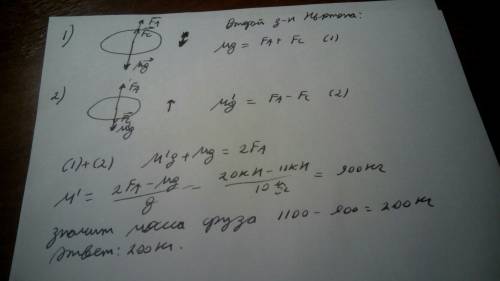 1) F_A F_C Второй з-н Ньютона:
Mg
Mg = F_A + F_C (1)
2) F_A
F_C Mg
M'g = F_A - F_C (2)
(1)+(2) M'g + Mg = 2F_A
M' = (2F_A - Mg)/g = (20кН - 11кН)/10 = 900кг
значит масса груза 1100 - 900 = 200кг
Ответ: 200кг.